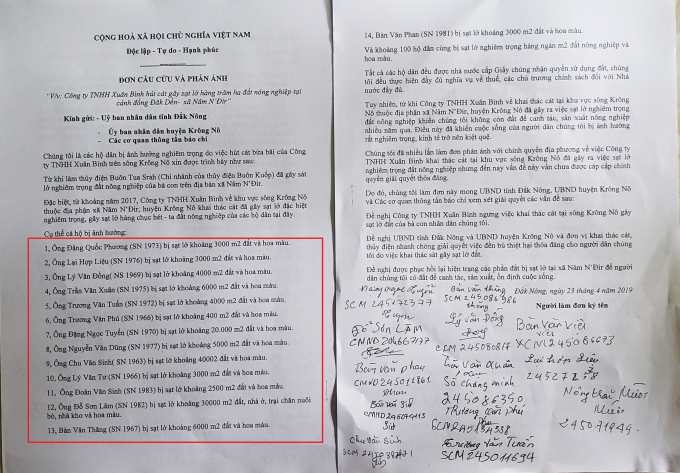 CỘNG HOÀ XÃ HỘI CHỦ NGHĨA VIỆT NAM
Độc lập - Tự do - Hạnh phúc
ĐƠN CẦU CỨU VÀ PHẢN ÁNH
"V/v: Công ty TNHH Xuân Bình hút cát gây sạt lở hàng trăm ha đất nông nghiệp tại
cánh đồng Đăk Dên- xã Năm N'Đir"
Kính gửi: - Uỷ ban nhân dân tỉnh Đắk Nông
- Ủy ban nhân dân huyện Krông Nô
- Các cơ quan thông tấn báo chí
Chúng tôi là các hộ dân bị ảnh hưởng nghiêm trọng do việc hút cát bừa bãi của Công
ty TNHH Xuân Bình trên sông Krông Nô xin được trình bày như sau:
Từ khi làm thủy điện Buôn Tua Srah (Chi nhánh của thủy điện Buôn Kuốp) đã gây sát
lở nghiêm trọng đất nông nghiệp của bà con trên địa bàn xã Năm N'Đir.
Đặc biệt, từ khoảng năm 2017, Công ty TNHH Xuân Bình về khu vực sông Krông Nô
thuộc địa phận xã Năm N'Đir, huyện Krông Nô khai thác cát đã gây sạt lở đặc biệt
nghiêm trọng, gây sạt lở hàng chục hét - ta đất nông nghiệp của các hộ dân tại đây.
Cụ thể cá hộ bị ảnh hưởng:
1, Ông Đặng Quốc Phương (SN 1973) bị sạt lở khoảng 3000 m2 đất và hoa màu.
2, Ông Lại Hợp Liệu (SN 1976) bị sạt lở khoảng 3000 m2 đất và hoa màu.
3, Ông Lý Văn Đồng( NS 1969) bị sạt lở khoảng 4000 m2 đất và hoa màu.
4, Ông Trần Văn Xuân (SN 1975) bị sạt lở khoảng 6000 m2 đất và hoa màu.
5, Ông Trương Văn Tuấn (SN 1972) bị sạt lở khoảng 4000 m2 đất và hoa màu.
6, Ông Trương Văn Phú (SN 1966) bị sạt lở khoảng 400 m2 đất và hoa màu.
7, Ông Đặng Ngọc Tuyển (SN 1970) bị sạt lở khoảng 20.000 m2 đất và hoa màu.
8, Ông Nguyễn Văn Dũng (SN 1977) bị sạt lở khoảng 5000 m2 đất và hoa màu.
9, Ông Chu Văn Sinh( SN 1963) bị sạt lở khoảng 40002 đất và hoa màu.
10, Ông Lý Văn Tư (SN 1966) bị sạt lở khoảng 3000 m2 đất và hoa màu.
11, Ông Đoàn Văn Sinh (SN 1983) bị sạt lở khoảng 2500 m2 đất và hoa màu.
12, Ông Đỗ Sơn Lâm (SN 1982) bị sạt lở khoảng 30000 m2 đất, nhà ở, trại chăn nuôi
bò, nhà kho và hoa màu.
13, Bàn Văn Thăng (SN 1967) bị sạt lở khoảng 6000 m2 đất và hoa màu.
14, Bàn Văn Phan (SN 1981) bị sạt lở khoảng 3000 m2 đất và hoa màu.
Và khoảng 100 hộ dân cùng bị sạt lở nghiêm trọng hàng ngàn m2 đất nông nghiệp và
hoa màu.
Tất cả các hộ dân đều được nhà nước cấp Giấy chúng nhận quyền sử dụng đất, chúng
tôi đều thực hiện đầy đủ nghĩa vụ về thuế, các chủ trương chính sách đối với Nhà
nước đầy đủ.
Tuy nhiên, từ khi Công ty TNHH Xuân Bình về khai thác cát tại khu vực sông Krông
Nô thuộc địa phận xã Năm N'Đir, huyện Krông Nô đã gây ra việc sạt lở nghiêm trọng
đất nông nghiệp khiến chúng tôi không còn đất để canh tác, sản xuất nông nghiệp
nhiều năm qua. Điều này đã khiến cuộc sống của người dân chúng tôi bị ảnh hưởng
rất nghiêm trọng, kinh tế trở nên kiệt quệ.
Chúng tôi đã nhiều lần làm đơn phản ánh với chính quyền địa phương về việc Công ty
TNHH Xuân Bình khai thác cát tại khu vực sông Krông Nô đã gây ra việc sạt lở
nghiêm trọng đất nông nghiệp nhưng đến nay vấn đề này vẫn chưa được cáp cấp chính
quyền giải quyết thỏa đáng.
Do đó, chúng tôi làm đơn này mong UBND tỉnh Đắk Nông, UBND huyện Krông Nô
và Các cơ quan thông tấn báo chí xem xét giải quyết các vấn đề sau:
Đề nghị Công ty TNHH Xuân Bình ngưng việc khai thác cát tại sông Krông Nô gây
sạt lở đất của bà con nhân dân chúng tôi.
Đề nghị UBND tỉnh Đắk Nông và UBND huyện Krông Nô và đơn vị khai cát,
thủy điện nhanh chóng giải quyết việc đền bù thiệt hại thỏa đáng cho người dân chúng
tôi do việc khai thác cát gây sạt lở trên.
Đề nghị được phục hồi lại hiện trạng các phần đất bị sạt lở tại xã Năm N'Đir để người
dân chúng tôi có đất để canh tác, sản xuất, ổn định cuộc sống.
Đắk Nông, ngày 23 tháng 4 năm 2019
Người làm đơn ký tên
Đặng Ngọc Tuyển
SCM 245172377
Bàn Văn Thăng
SCM 245086986
Đỗ Sơn Lâm
Lý Văn Đồng
Bàn Văn Việt
Bàn Văn Phan
CMND 245011861
Trần Văn Xuân
Số chứng minh
245086350
Lại Hợp Liệu
Trương Văn Phú
Chu Văn Sinh
Trương Văn Tuấn
SCM 245011694